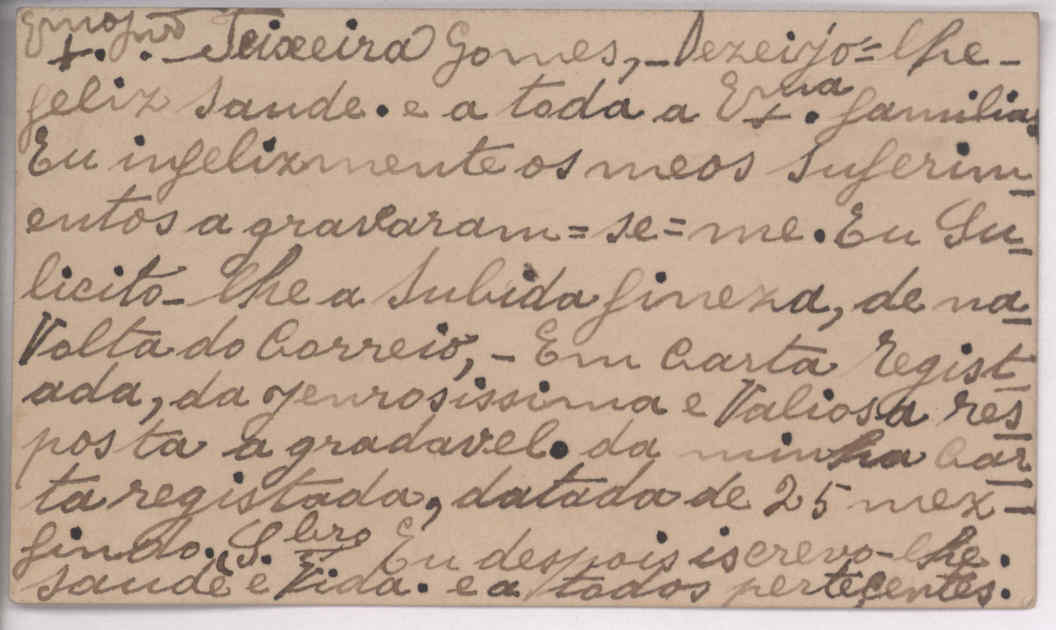 Exmo Snr. Teixeira Gomes,-Dezeijo=lhe-
feliz saude. e a toda a Exma. familia.
Eu infelizmente os meos suferim-
entos agravaram=se=me. Eu Su-
licito-lhe a subida fineza, de na
Volta do Correio,-Em Carta Regist-
ada, da jenrosissima e Valiosa res-
posta agradavel. da minha Car-
ta registada, datada de 25 mez-
findo. S.bro Eu despois iscrevo-lhe.
saude e Vida. e a todos pertecentes.